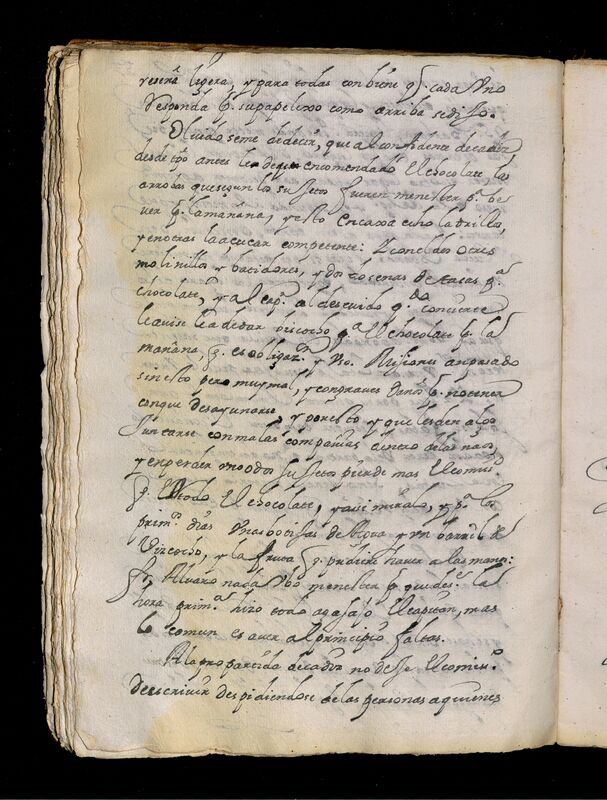 y será ligera, y para todas conbiene q̃ cada Uno
Responda p.r su papelillo como arriba se dijo.
Olvidoseme dedecir, que al confidente de cadiz
desde q̃ antes le deje encomendado El chocolate, las
arrobas que segun los sujetos fueren menester p.a be
ver p.r la mañana, y esto en caxa
y en otras la açucar competente: con el dos o tres
molinillos y batidores, y dos docenas de tacas p.a
chocolate, y al cap.n al descuido q.do converse
le avise lea de dar biscocho p.a El chocolate p.r la
mañana, q̃ es obligaz.n y Uso. Missiones an pasado
sin esto pero muy mal, y con graves daños p.r no tener
con que desayunarse, y por esto y que les den algo
juntarse con malas compañias dentro de las naos,
y en perder modos sujetos pierde mas El comis.o
q̃ Todo El chocolate, y assi mirelo, y p.a los
prim.os dias Unas botijas de Agua y un barril de
Vizcocho, y la fruta q̃ pudiere haver a las manos:
fr. Alvaro nada Ubo menester p.r que des.e la
hora prim.a hizo todo agasajo El capitan, mas
lo comun es aver al principio faltas.
A la pro partida de cadiz no desse El comis.o
de escrivir despidiendose de las personas a quienes